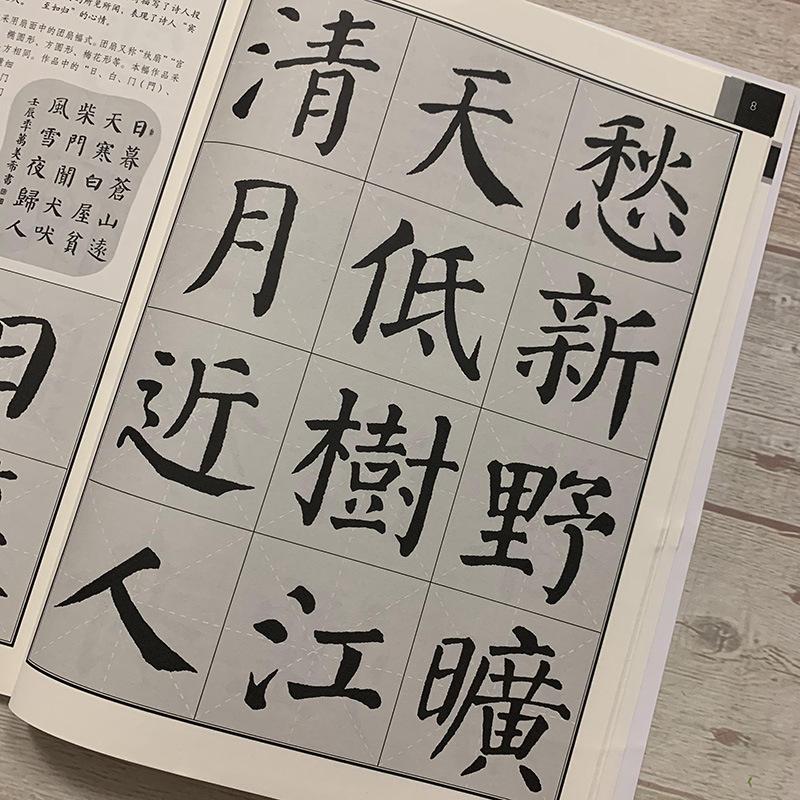 8
愁新野曠
天低樹江
清月近人
描写了诗人投
的所见所闻，表现了诗人“宾
至如归”的心情。
采用扇面中的团扇幅式。团扇又称“纨扇”“宫
椭圆形、方圆形、梅花形等。本幅作品采
方相同。作品中的“日、白、门（門）、
日暮蒼山遠
天寒白屋貧
柴門聞犬吠
風雪夜歸人
日